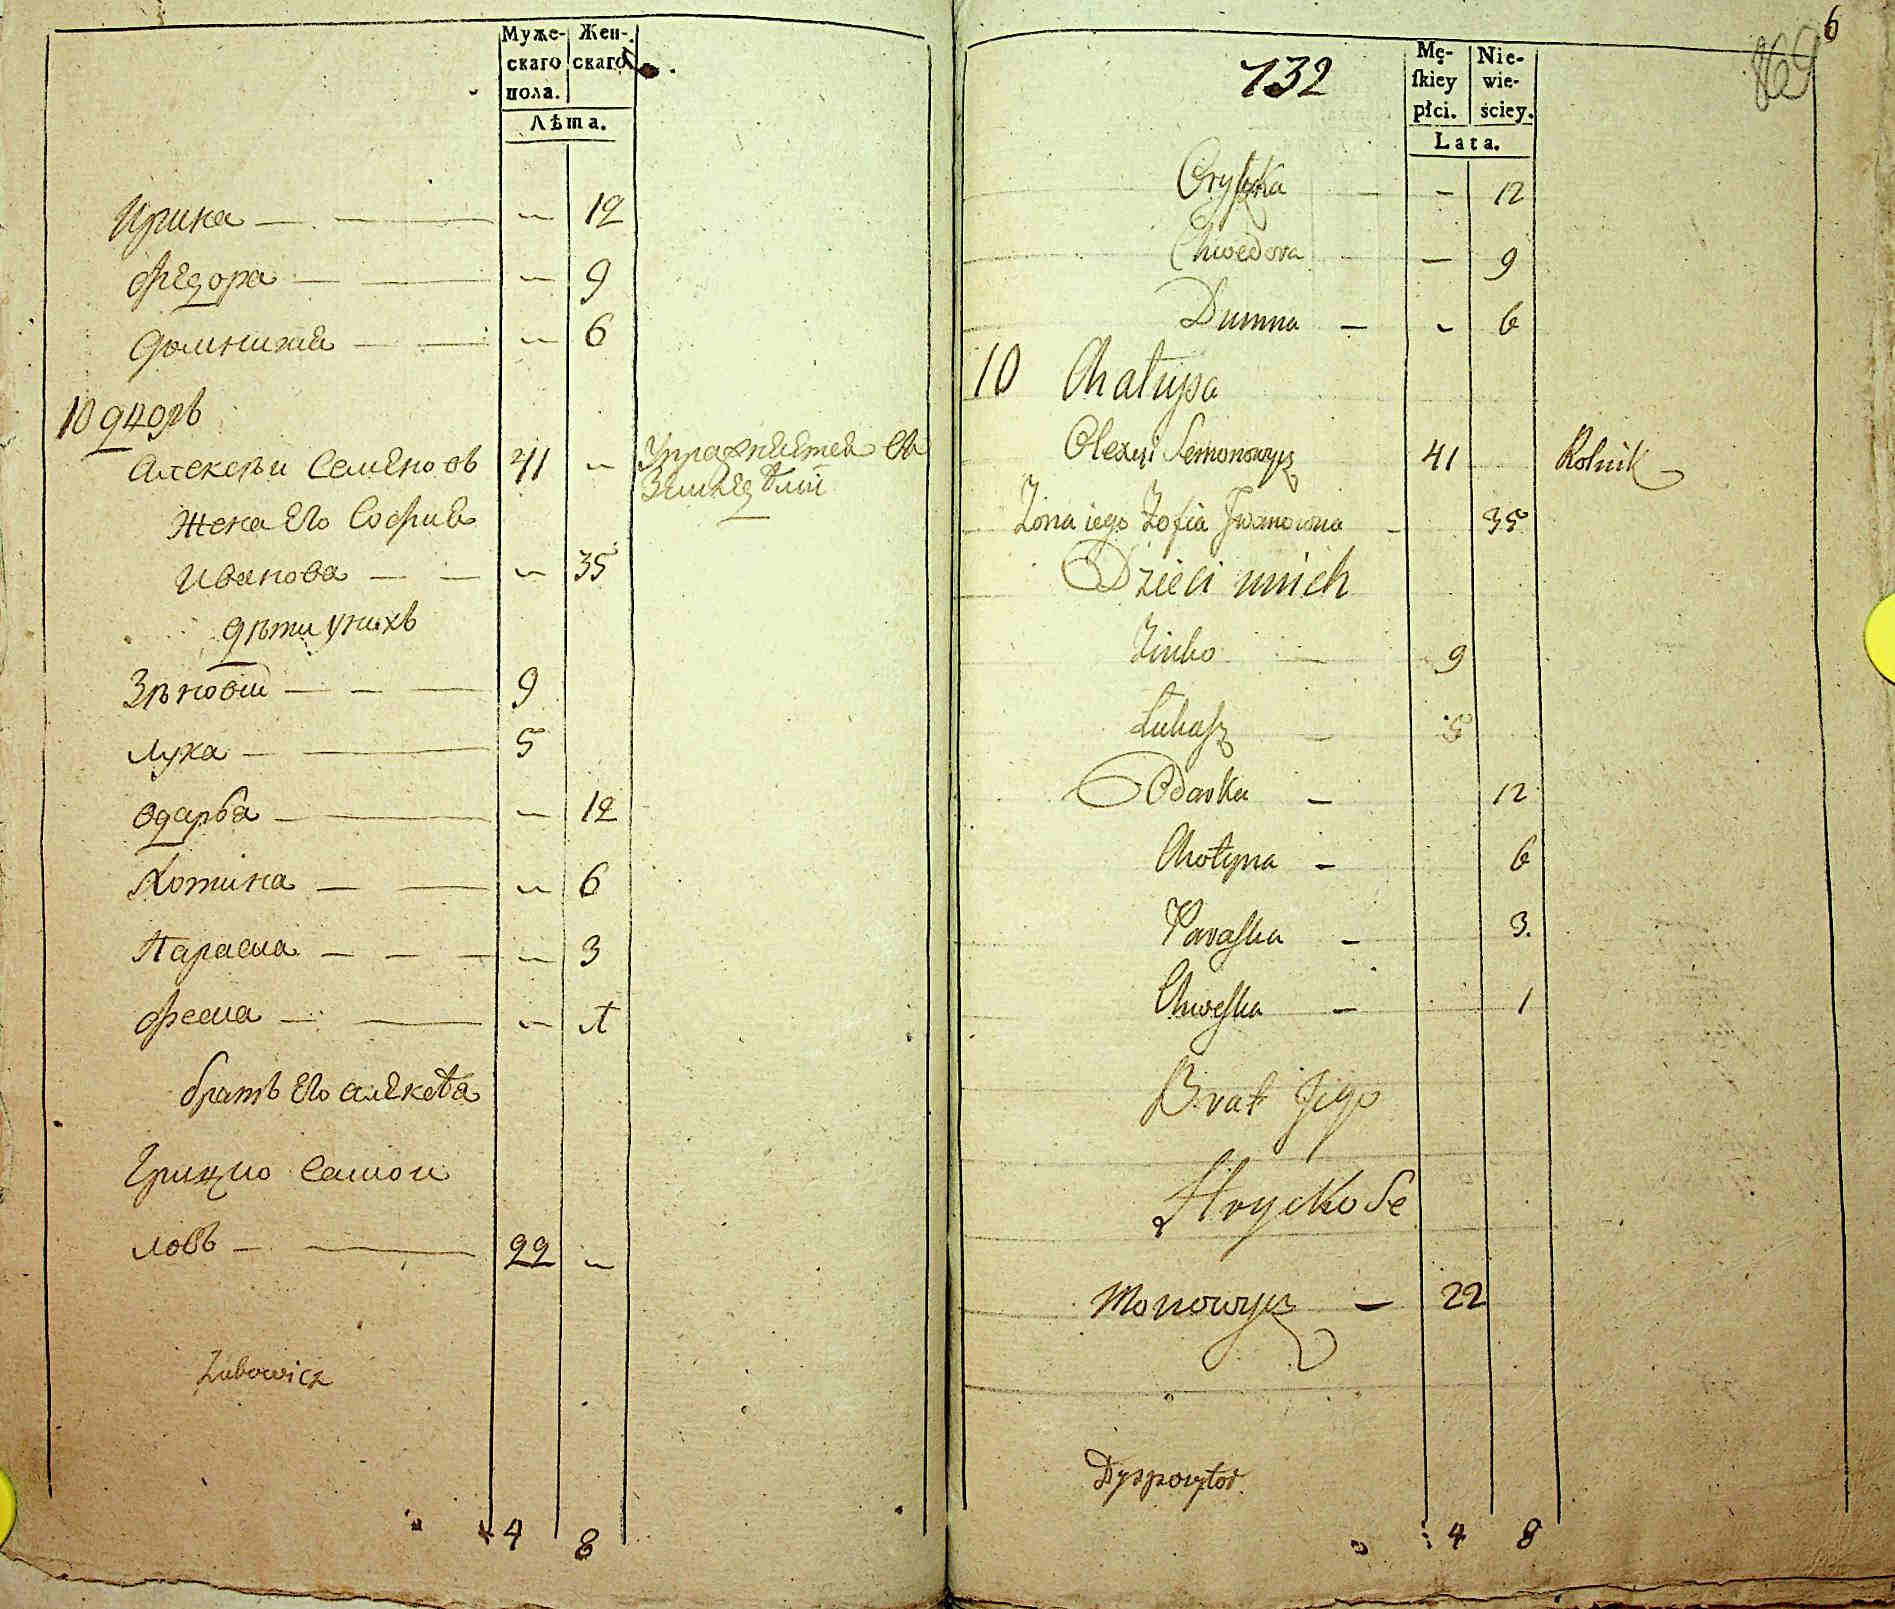 Муже- Жен-
скаго скаго
пола.
Лѣта.
Ирина — — 12
Федора — — 9
Домникия — — 6
10 дворъ
Алексѣи Семенов 41 Упражняется въ
Земледѣліи
Жена Его София
Иванова — — 35
дѣти унихъ
Зѣновии — — 9
Лука — — 5
Одарья — — 12
Хотина — — 6
Параска — — 3
Феска — — 1
братъ Его Алексѣя
Грицко Самои
ловъ — — 22
Zubowicz
4 8
6
132 869
Mę- Nie-
ſkiey wie-
płci. ściey.
Lata.
Oryszka — — 12
Chwedora — — 9
Dumna — — 6
10 Chałupa
Olexyi Semonowycz 41 Rolnik
Żona iego Zofia Iwanowna — 35
Dzieci unich
Zinko — 9
Łukasz — 5
Odarka — 12
Chotyna — 6
Paraska — 3.
Chweska — 1
Brat Jego
Hrycko Se
monowycz — 22
Dyspozytor.
4 8